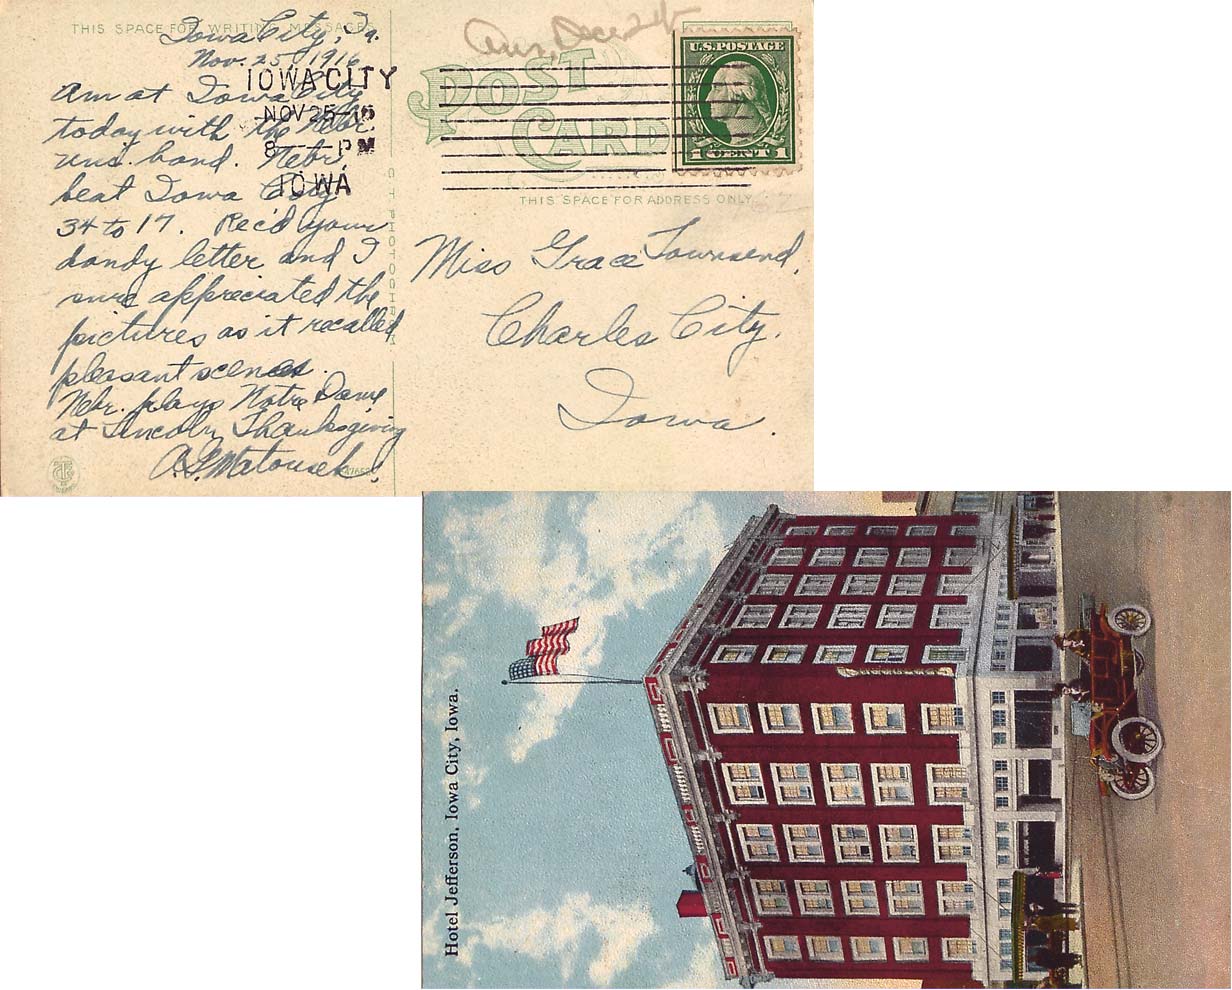 THIS SPACE FOR WRITING MESSAGES
Iowa City, Ia.
Nov. 25, 1916
Am at Iowa City
today with the Nebr.
uni. band. Nebr.
beat Iowa City
34 to 17. Rec'd your
dandy letter and I
sure appreciated the
pictures as it recalled
pleasant scenes.
Nebr. plays Notre Dame
at Lincoln Thanksgiving
A. L. Matousek.
IOWA CITY
NOV 25
8 PM
IOWA
C T PHOTOCHROM
POST
CARD
U.S. POSTAGE
1 CENT 1
THIS SPACE FOR ADDRESS ONLY
Miss Grace Townsend,
Charles City,
Iowa.
Hotel Jefferson, Iowa City, Iowa.